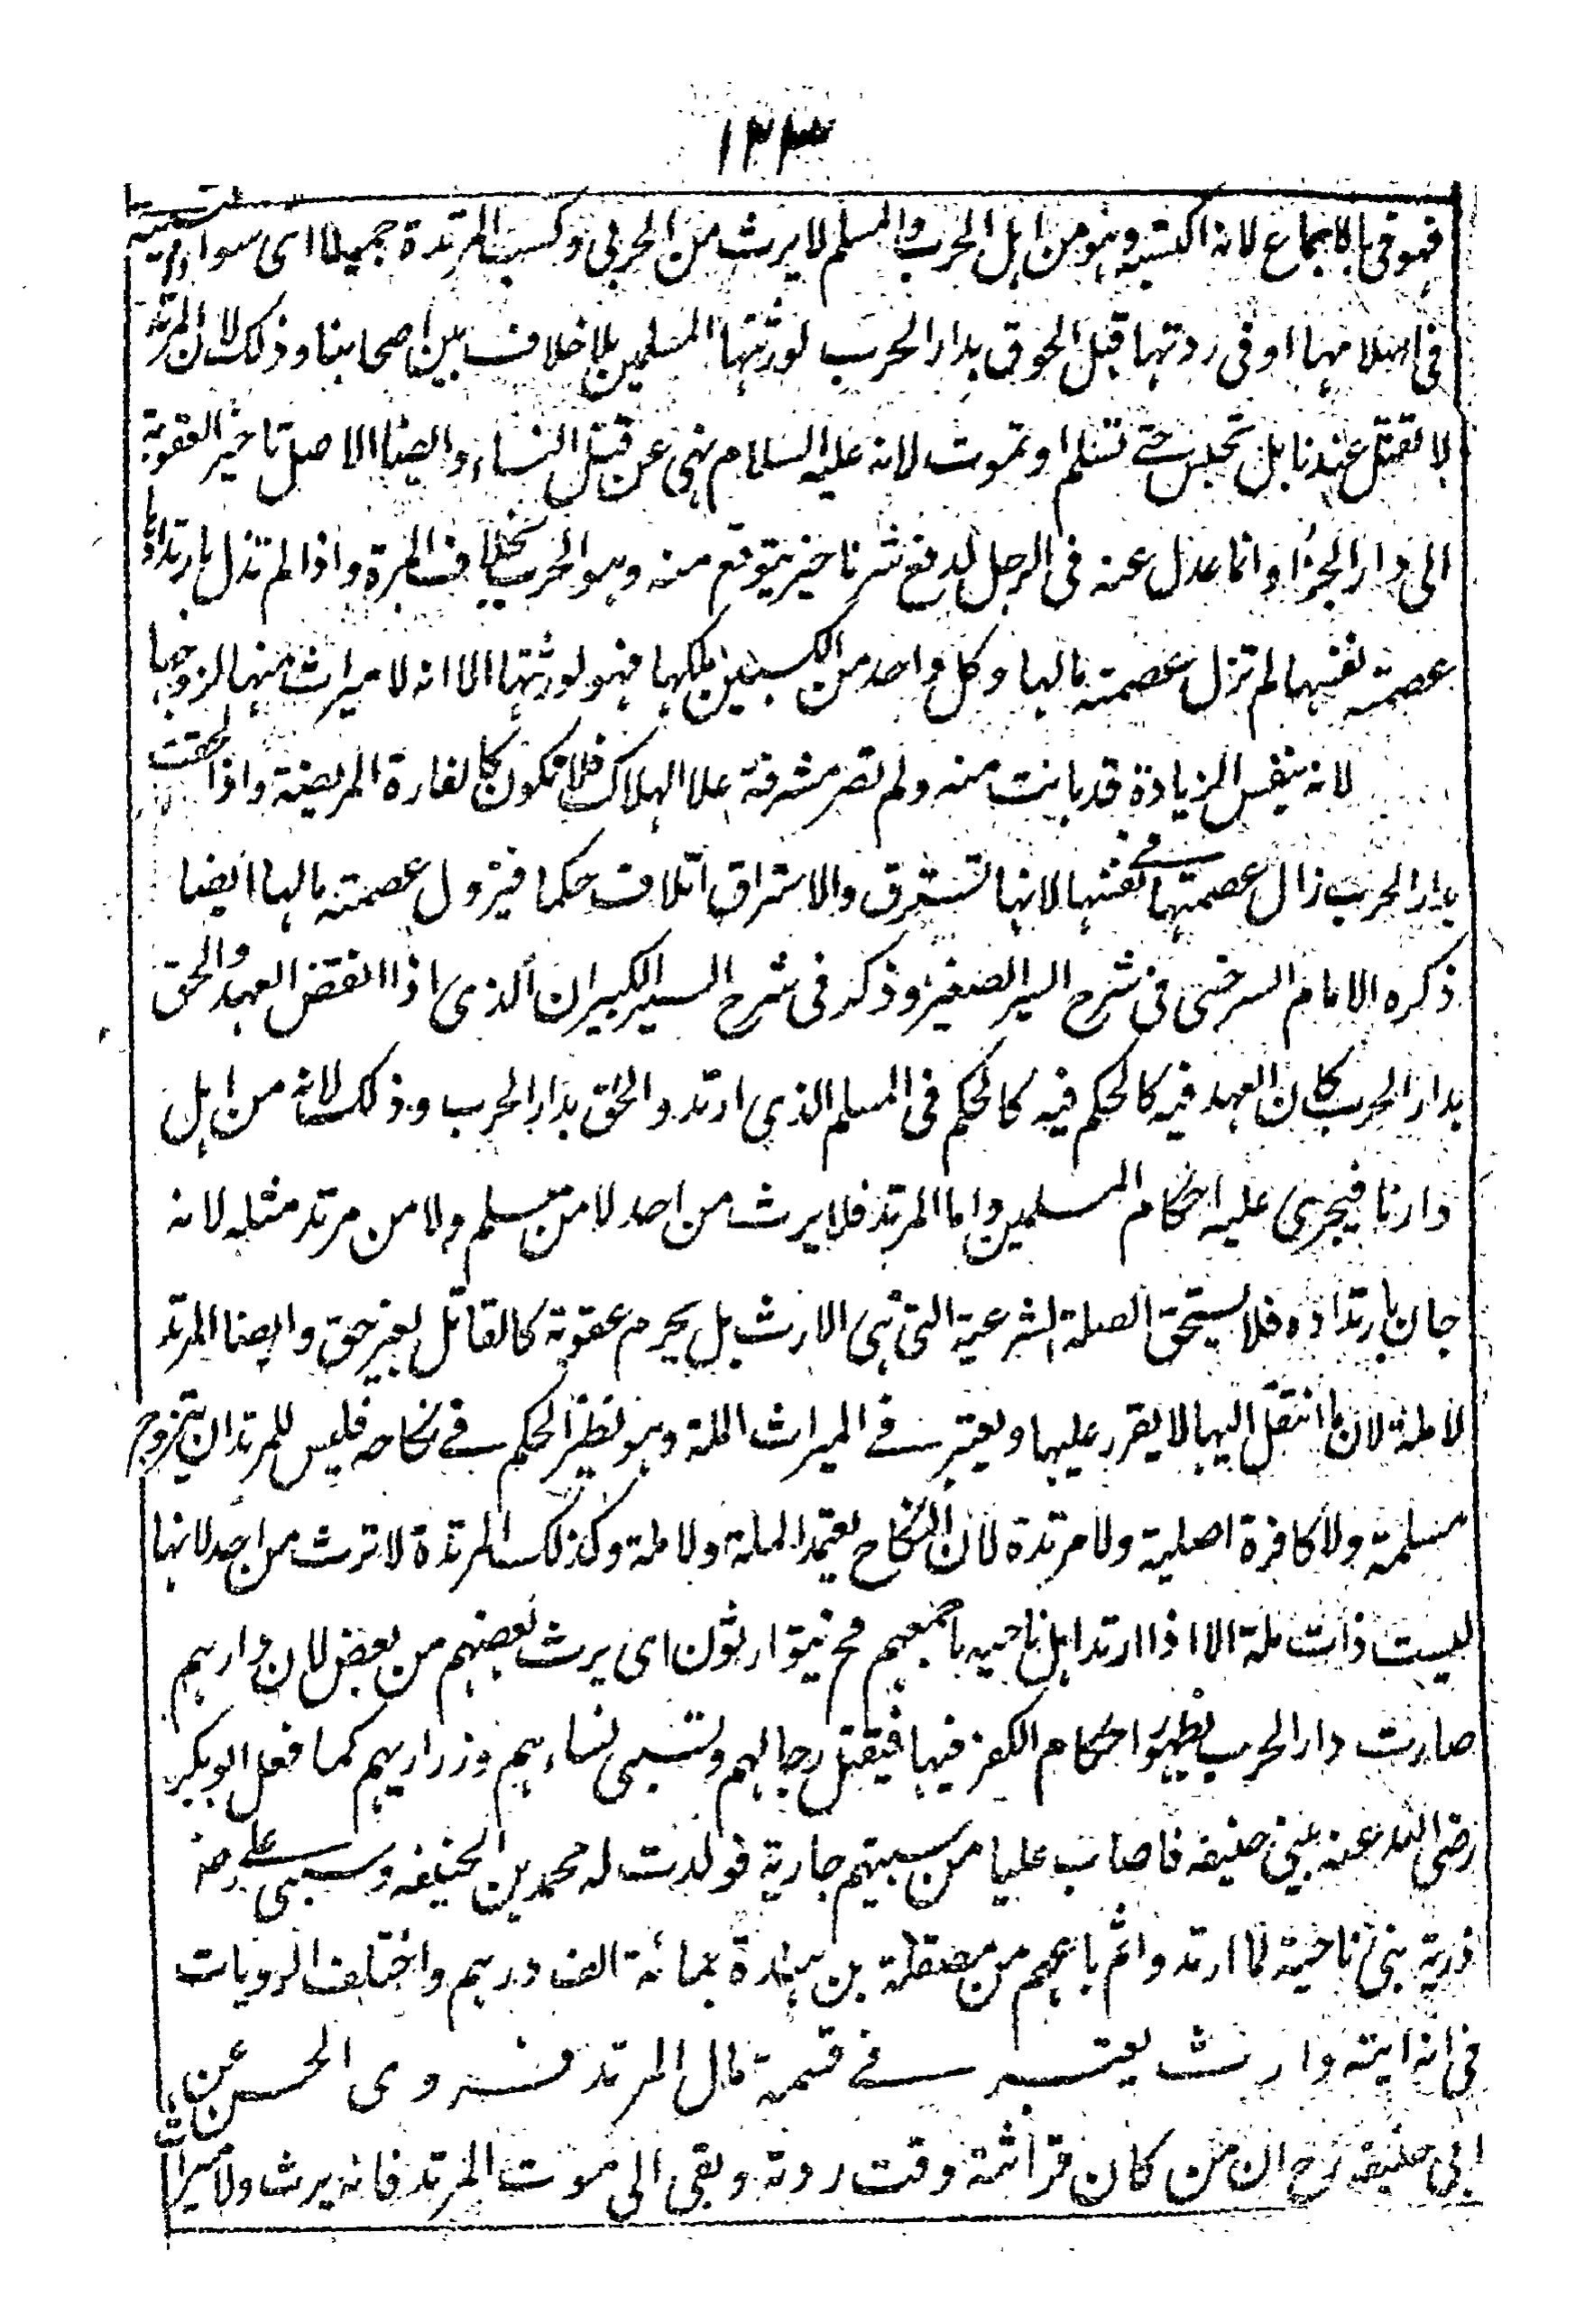 ١٢٣
فهو فئ بالاجماع لانه اكتسبه وهو من اهل الحرب والمسلم لا يرث من الحربى وكسب المرتدة جميعا اى سواء
فى اسلامها او فى ردتها قبل اللحوق بدار الحرب لورثتها المسلمين بلا خلاف بين اصحابنا وذلك لان المرتدة
لا تقتل عندنا بل تحبس حتى تسلم او تموت لانه عليه السلام نهى عن قتل النساء وايضا الاصل تاخير العقوبة
الى دار الجزاء وانما عدل عنه فى الرجل لدفع شر ناجز يتوقع منه وهو الحرب بخلاف المرأة واذا لم تزل بارتدادها
عصمة نفسها لم تزل عصمة مالها وكل واحد من الكسبين ملكها فهو لورثتها الا انه لا ميراث منها لزوجها
لانه بنفس الزيادة قد بانت منه ولم تصر مشرفة على الهلاك فلا تكون كالفارة المريضة واذا لحقت
بدار الحرب زال عصمتها فى نفسها لانها تسترق والاسترقاق اتلاف حكما فيزول عصمة مالها ايضا
ذكره الامام السرخسى فى شرح السير الصغير وذكر فى شرح السير الكبير ان الذى اذا نقض العهد والحق
بدار الحرب كان العهد فيه كالحكم فيه كالحكم فى المسلم الذى ارتد والحق بدار الحرب وذلك لانه من اهل
دارنا فيجرى عليه احكام المسلمين واما المرتد فلا يرث من احد لا من مسلم ولا من مرتد مثله لانه
جان بارتداده فلا يستحق الصلة الشرعية التى هى الارث بل يحرم عقوبة كالقاتل بغير حق وايضا المرتد
لا ملة لان ما انتقل اليها لا يقرر عليها ويعتبر فى الميراث الملة وهو نظير الحكم فى نكاحه فليس للمرتد ان يتزوج
مسلمة ولا كافرة اصلية ولا مرتدة لان النكاح يعتمد الملة ولا ملة وكذلك المرتدة لا ترث من احد لانها
ليست ذات ملة الا اذا ارتد اهل ناحيه باجمعهم فح يتوارثون اى يرث بعضهم من بعض لان دارهم
صارت دار الحرب بظهور احكام الكفر فيها فيقتل رجالهم وتسبى نساءهم وذراريهم كما فعل ابو بكر
رضى الله عنه ببنى حنيفه فاصاب عليا من سبيهم جارية فولدت له محمد بن الحنيفه وسبى على رضه
ذرية بنى ناحية لما ارتدوا ثم باعهم من مصقلة بن هبيرة بمائة الف درهم واختلف الرويات
فى انه ايته وارث يعتبر فى قسمة مال المرتد فروى الحسن عن
ابى حنيفه رح ان من كان وارثه وقت ردته وبقى الى موت المرتد فانه يرث ولا ميراث